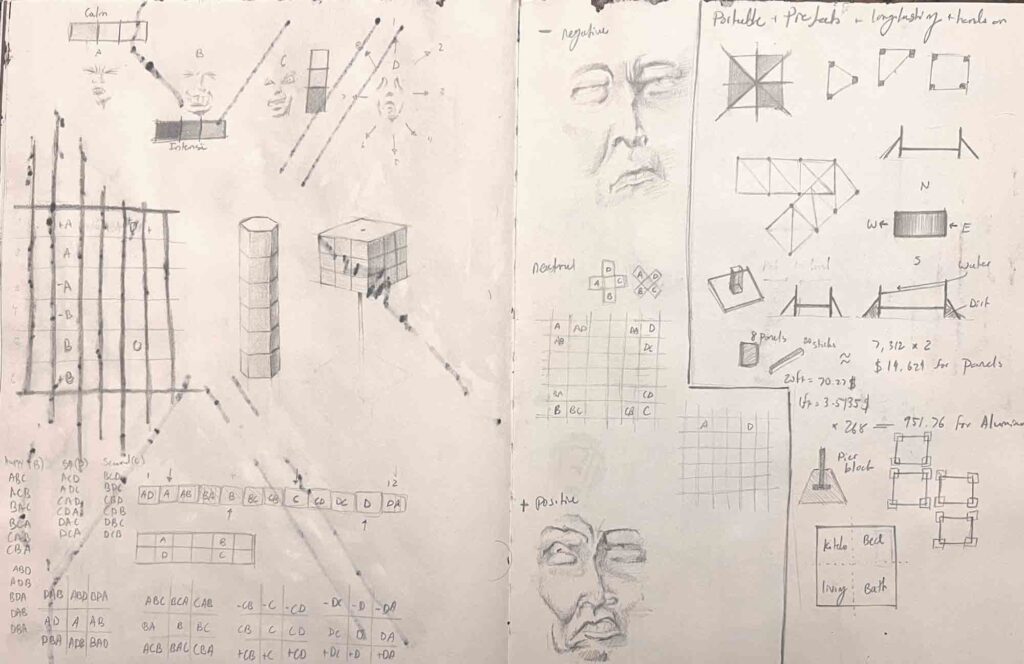 Calm
A
B
C
D
Intense
+A
A
-A
-B
B
+B
ABC
ACB
BAC
BCA
CAB
CBA
ABD
ADB
BDA
DAB
DBA
ACD
ADC
CAD
CDA
DAC
DCA
Scared(C)
BCD
BDC
CBD
CDB
DBC
DCB
1
12
AD A AB BA B BC CB C CD DC D DA
A B
D C
DAB ABD BDA
AD A AB
DBA ADB BAD
ABC BCA CAB
BA B BC
ACB BAC CBA
-CB -C -CD
CB C CD
+CB +C +CD
-DC -D -DA
DC D DA
+DC +D +DA
- negative
neutral
D
A C
B
A D
B C
A AD DA D
AB DC
BA CD
B BC CB C
+ Positive
A D
Portable + Prefab - longlasting + hands on
N
W E
S
Water
Dirt
8 panels
20 sticks
≈
7,312 × 2
$14,624 for Panels
20ft = 70.27$
1ft = 3.5135$
× 268 = 951.76 for Aluminum
Pier
block
Bed
living Bath